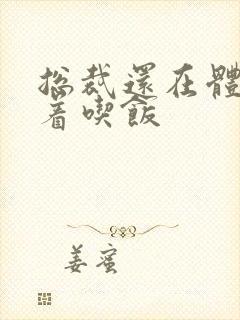 總裁還在體
着喫飯
姜蜜